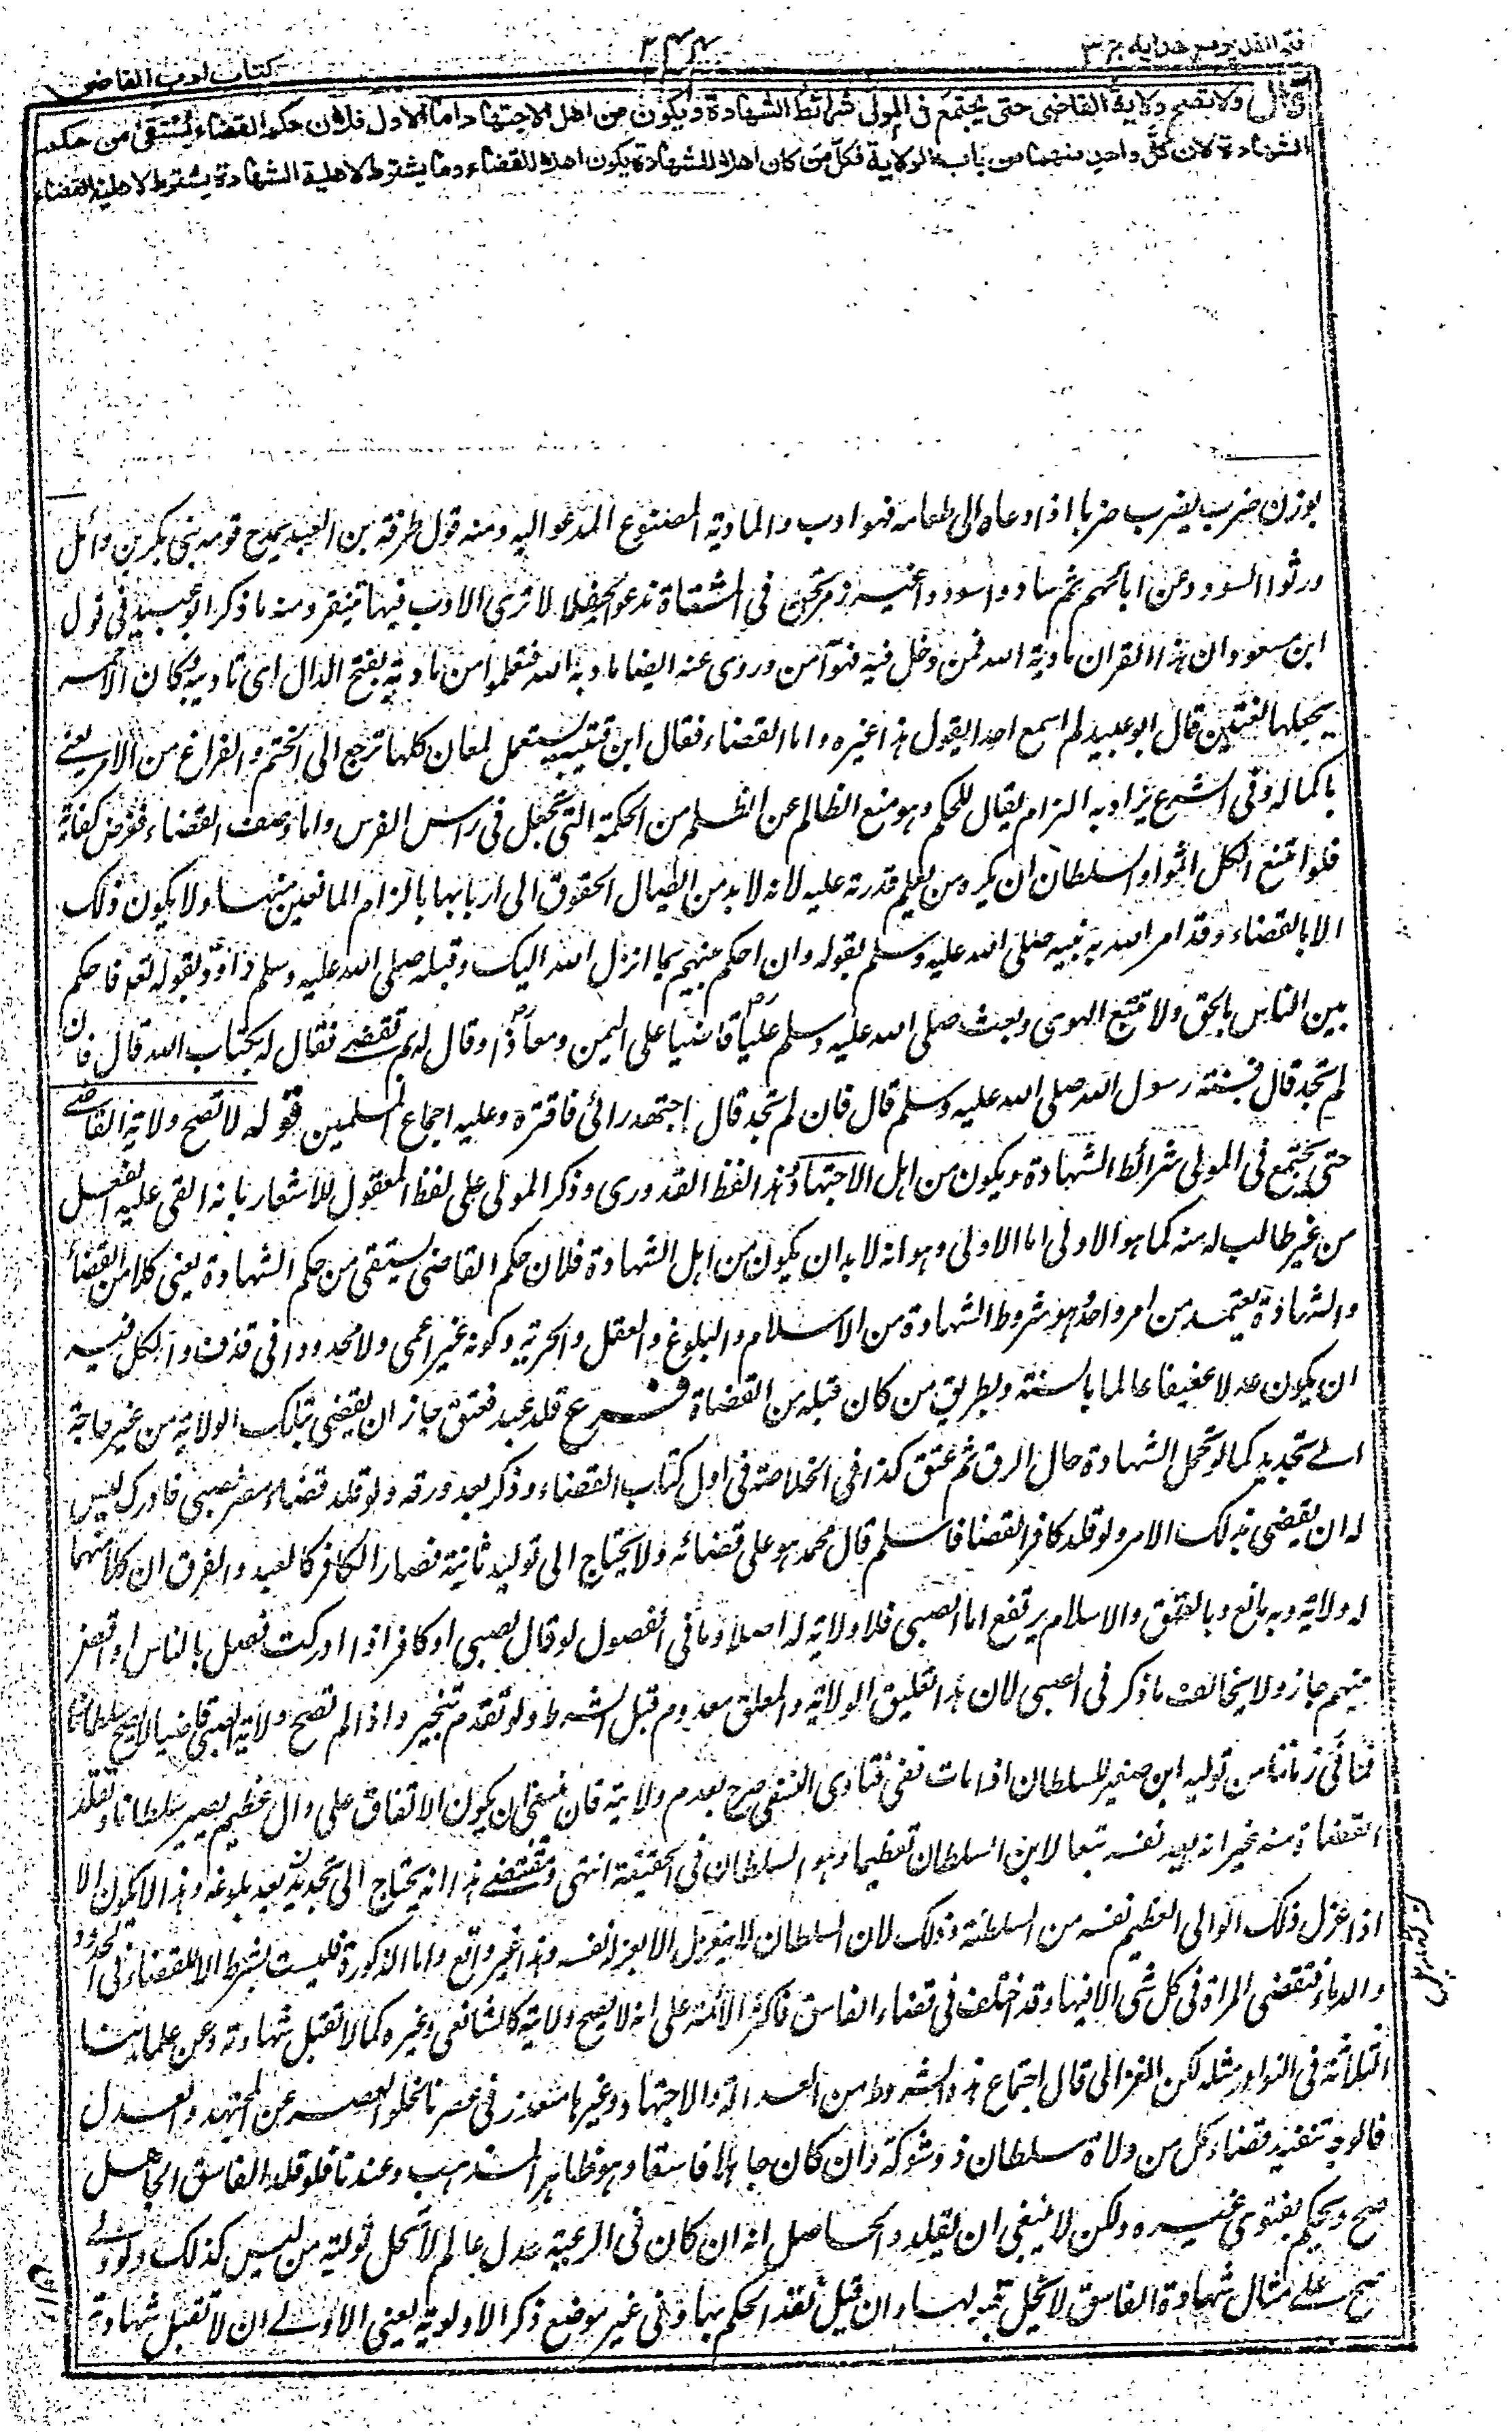 فتح القدير مع هدايه ج ٣
كتاب ادب القاضى
قال ولا تصح ولاية القاضى حتى يجتمع فى المولى شرائط الشهادة ويكون من اهل الاجتهاد اما الاول فلان حكم القضاء يستقى من حكم
الشهادة لان كل واحد منهما من باب الولاية فكل من كان اهلا للشهادة يكون اهلا للقضاء وما يشترط لاهلية الشهادة يشترط لاهلية القضاء
بوزن ضرب يضرب ضربا اذا دعاه الى طعامه فهو ادب والمادبة المصنوع المدعو اليه ومنه قول طرفة بن العبد يمدح قومه بنى بكر بن وائل
ورثوا السودد عن ابائهم ثم سادوا سوددا غير زمر نحن فى المشتاة ندعو الجفلا لا ترى الادب فيها ينتقر ومنه ما ذكر ابو عبيد فى قول
ابن مسعود ان هذا القران مادبة الله فمن دخل فيه فهو آمن وروى عنه ايضا مادبة الله فتعلموا من مادبته بفتح الدال اى تاديبه كان الاحمر
يجعلها لغتين قال ابو عبيد لم اسمع احدا يقول هذا غيره واما القضاء فقال ابن قتيبة يستعمل لمعان كلها ترجع الى الختم والفراغ من الامر يعنى
باكماله وفى الشرع يراد به الزام يقال للحكم وهو منع الظالم عن الظلم من الحكمة التى تجعل فى راس الفرس واما وصف القضاء ففرض كفاية
فلو امتنع الكل اثموا والسلطان ان يكره من يعلم قدرته عليه لانه لا بد من ايصال الحقوق الى اربابها بالزام المانعين منها ولا يكون ذلك
الا بالقضاء وقد امر الله به نبيه صلى الله عليه وسلم بقوله وان احكم بينهم بما انزل الله اليك وقبله صلى الله عليه وسلم داود بقوله تعه فاحكم
بين الناس بالحق ولا تتبع الهوى وبعث صلى الله عليه وسلم عليا قاضيا على اليمن ومعاذا وقال له بم تقضى فقال له بكتاب الله قال فان
لم تجد قال فبسنة رسول الله صلى الله عليه وسلم قال فان لم تجد قال اجتهد رائى فاقره وعليه اجماع المسلمين قوله لا تصح ولاية القاضى
حتى يجتمع فى المولى شرائط الشهادة ويكون من اهل الاجتهاد هذا لفظ القدورى وذكر المولى على لفظ المعقول للاشعار بانه القى عليه الفعل
من غير طالب له منه كما هو الاولى اما الاولى وهو انه لا بد ان يكون من اهل الشهادة فلان حكم القاضى يستقى من حكم الشهادة يعنى كلا من القضاء
والشهادة يعتمد من امر واحد هو شروط الشهادة من الاسلام والبلوغ والعقل والحرية وكونه غير اعمى ولا محدودا فى قذف والكل فيه
ان يكون عدلا عفيفا عالما بالسنة وبطريق من كان قبله من القضاة فرع قلد عبد فعتق جاز ان يقضى بتلك الولاية من غير حاجة
الے تجديد كما لو تحمل الشهادة حال الرق ثم عتق كذا فى الخلاصة فى اول كتاب القضاء وذكر بعد ورقة ولو قلد قضاء مصر لصبى فادرك ليس
له ان يقضى بذلك الامر ولو قلد كافر القضا فاسلم قال محمد هو على قضائه ولا يحتاج الى تولية ثانية فصار الكافر كالعبد والفرق ان كلا منهما
له ولاية وبه مانع وبالعتق والاسلام يرتفع اما الصبى فلا ولاية له اصلا وما فى الفصول لو قال لصبى او كافر اذا ادركت فصل بالناس او اقض
بينهم جاز ولا يخالف ما ذكر فى الصبى لان هذا تعليق الولاية والمعلق معدوم قبل الشرط ولو تقدم تنجيز واذا لم تصح ولاية الصبى قاضيا لا يصح سلطانا
فما فى زماننا من تولية ابن صغير للسلطان اذا مات ففى فتاوى النسفى صرح بعدم ولايته فان ينبغى ان يكون الاتفاق على وال عظيم يصير سلطانا وتقلد
القضاة منه غير انه يعد نفسه تبعا لابن السلطان تعظيما وهو السلطان فى الحقيقة انتهى ومقتضى هذا انه يحتاج الى تجديد بعد بلوغه وهذا لا يكون الا
اذا عزل ذلك الوالى العظيم نفسه من السلطنة وذلك لان السلطان لا ينعزل الا بعزله نفسه وهذا غير واقع واما الذكورة فليست بشرط الا للقضاء فى الحدود
والدماء فتقضى المراة فى كل شى الا فيها وقد اختلف فى قضاء الفاسق فاكثر الائمة على انه لا يصح ولايته كالشافعى وغيره كما لا تقبل شهادته وعن علمائنا
الثلاثة فى النوادر مثله لكن الغزالى قال اجتماع هذه الشروط من العدالة والاجتهاد وغيرها متعذر فى عصرنا لخلو العصر عن المجتهد والعدل
فالوجه تنفيذ قضاء كل من ولاه سلطان ذو شوكة وان كان جاهلا فاسقا وهو ظاهر المذهب وعندنا فلو قلد الفاسق الجاهل
صح ويحكم بفتوى غيره ولكن لا ينبغى ان يقلد والحاصل انه ان كان فى الرعية عدل عالم لا تحل تولية من ليس كذلك ولو ولى
صح على مثال شهادة الفاسق لا يحل قبولها وان قبل نفذ الحكم بها وفى غير موضع ذكر الاولوية يعنى الاولے ان لا تقبل شهادته